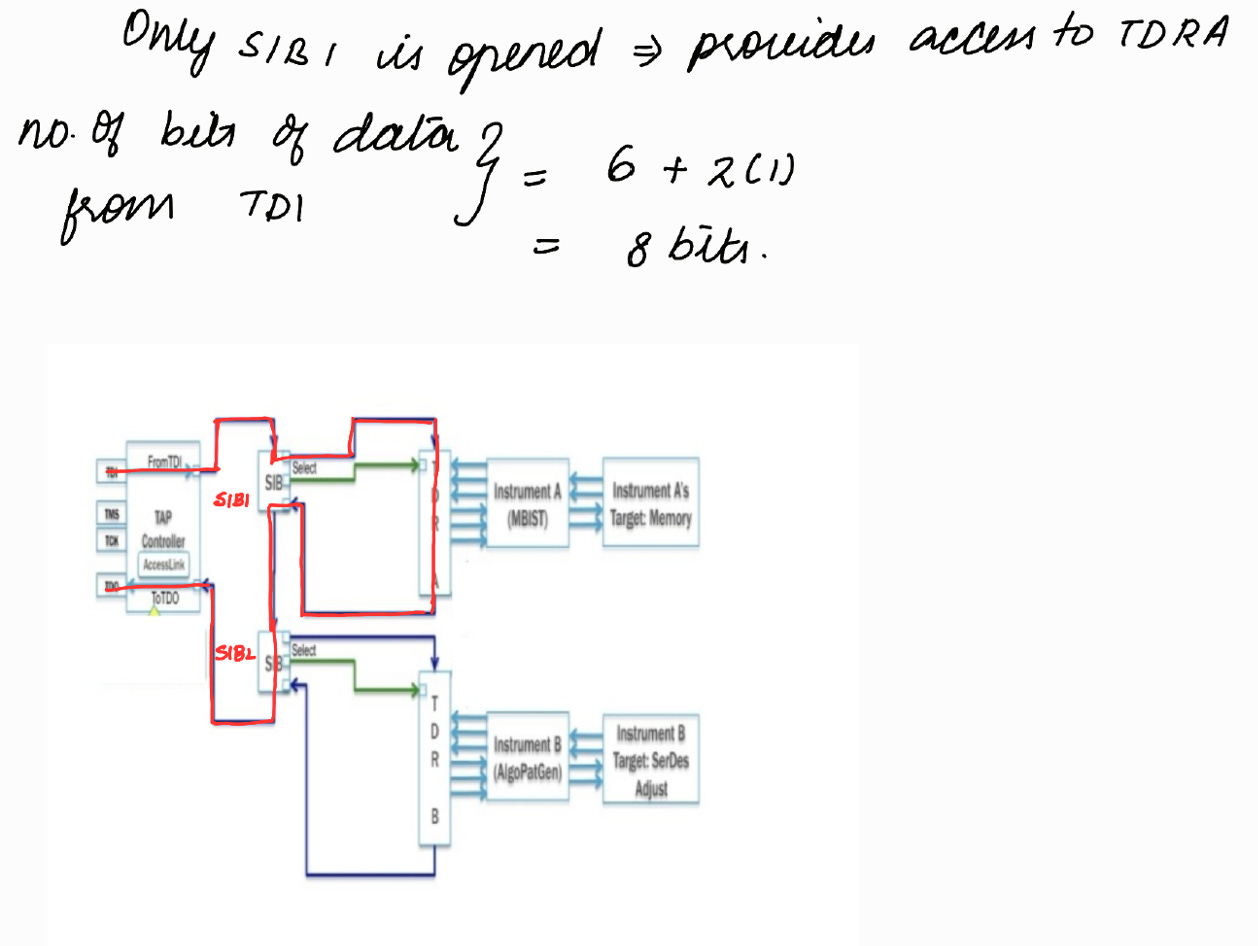 Only SIB1 is opened ⇒ provides access to TDRA
no. of bits of data } = 6 + 2(1)
from TDI
= 8 bits.
FromTDI
TDI
SIB
Select
SIB1
TMS
TAP
Controller
TCK
AccessLink
TDO
ToTDO
T
D
R
A
Instrument A
(MBIST)
Instrument A's
Target: Memory
SIB2
SIB
Select
T
D
R
B
Instrument B
(AlgoPatGen)
Instrument B
Target: SerDes
Adjust